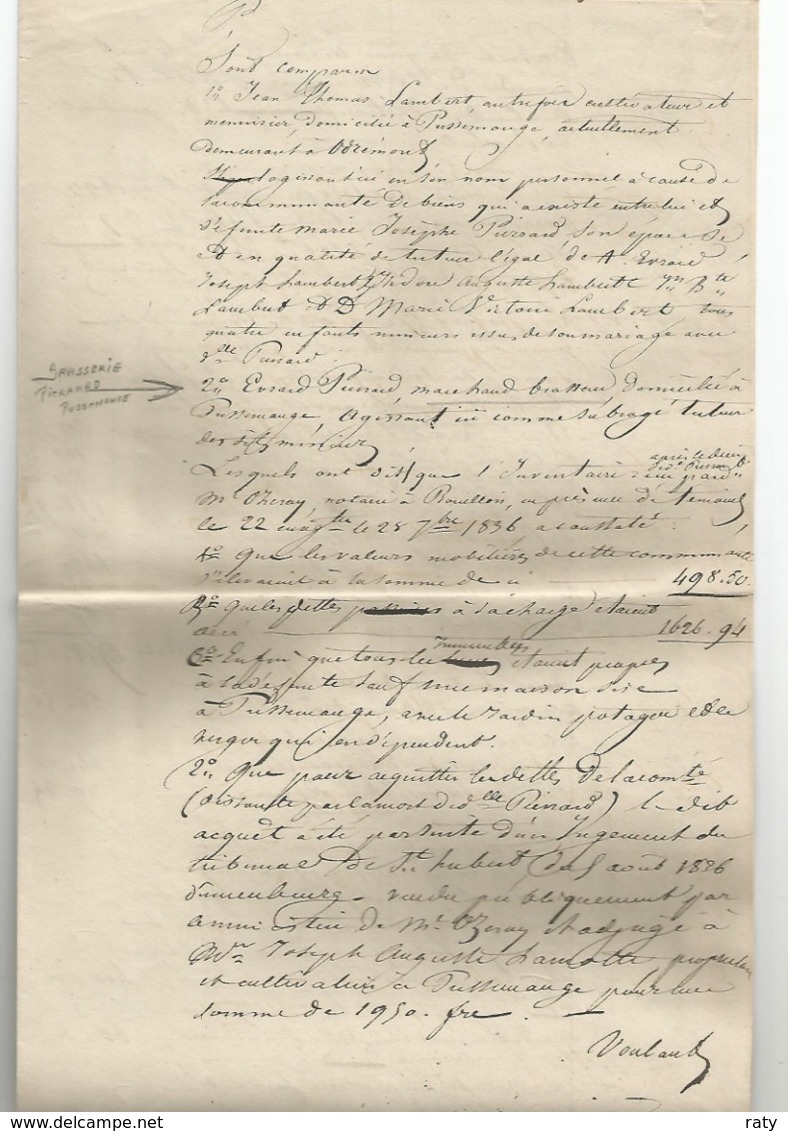 Sont comparu
1° Jean Thomas Lambert, autrefois cultivateur et
menuisier, domicilié à Pussemange, actuellement
demeurant à
agissant ici en son nom personnel à cause de
la communauté de biens qui a existé entre lui et
défunte Marie Josèphe Pierrard son épouse
et en qualité de tuteur légal de Evrard
Joseph Lambert, Isidore Auguste Lambert, Jn Bte
Lambert et D Marie Victoire Lambert, tous
quatre enfants mineurs issus de son mariage avec
dlle Pierrard.
BRASSERIE
PIERRARD
PUSSEMANGE
2° Evrard Pierrard, marchand brasseur domicilié à
Pussemange, agissant ici comme subrogé tuteur
des dits mineurs
après le décès
Lesquels ont dit que l'Inventaire
Mr Ozeray, notaire à Bouillon, en présence de témoins
le 22 le 28 7bre 1836 a constaté :
1° que les valeurs mobilières de cette communauté
s'élevaient à la somme de 498.50
2° que les dettes à sa charge étaient
de 1626.94
Immeubles
3° Enfin que tous les étaient propres
à la défunte sauf une maison sise
à Pussemange, avec le Jardin potager et le
verger qui en dépendent.
2° Que pour acquitter les dettes de la comté
(dissoute par la mort de dlle Pierrard) le dit
acquêt a été par suite d'un Jugement du
tribunal de St hubert, du 5 août 1836
vendu publiquement par
a ministère de Mr Ozeray et adjugé à
Joseph Auguste Lamotte propriétaire
et cultivateur à Pussemange pour une
somme de 1950. frs
raty